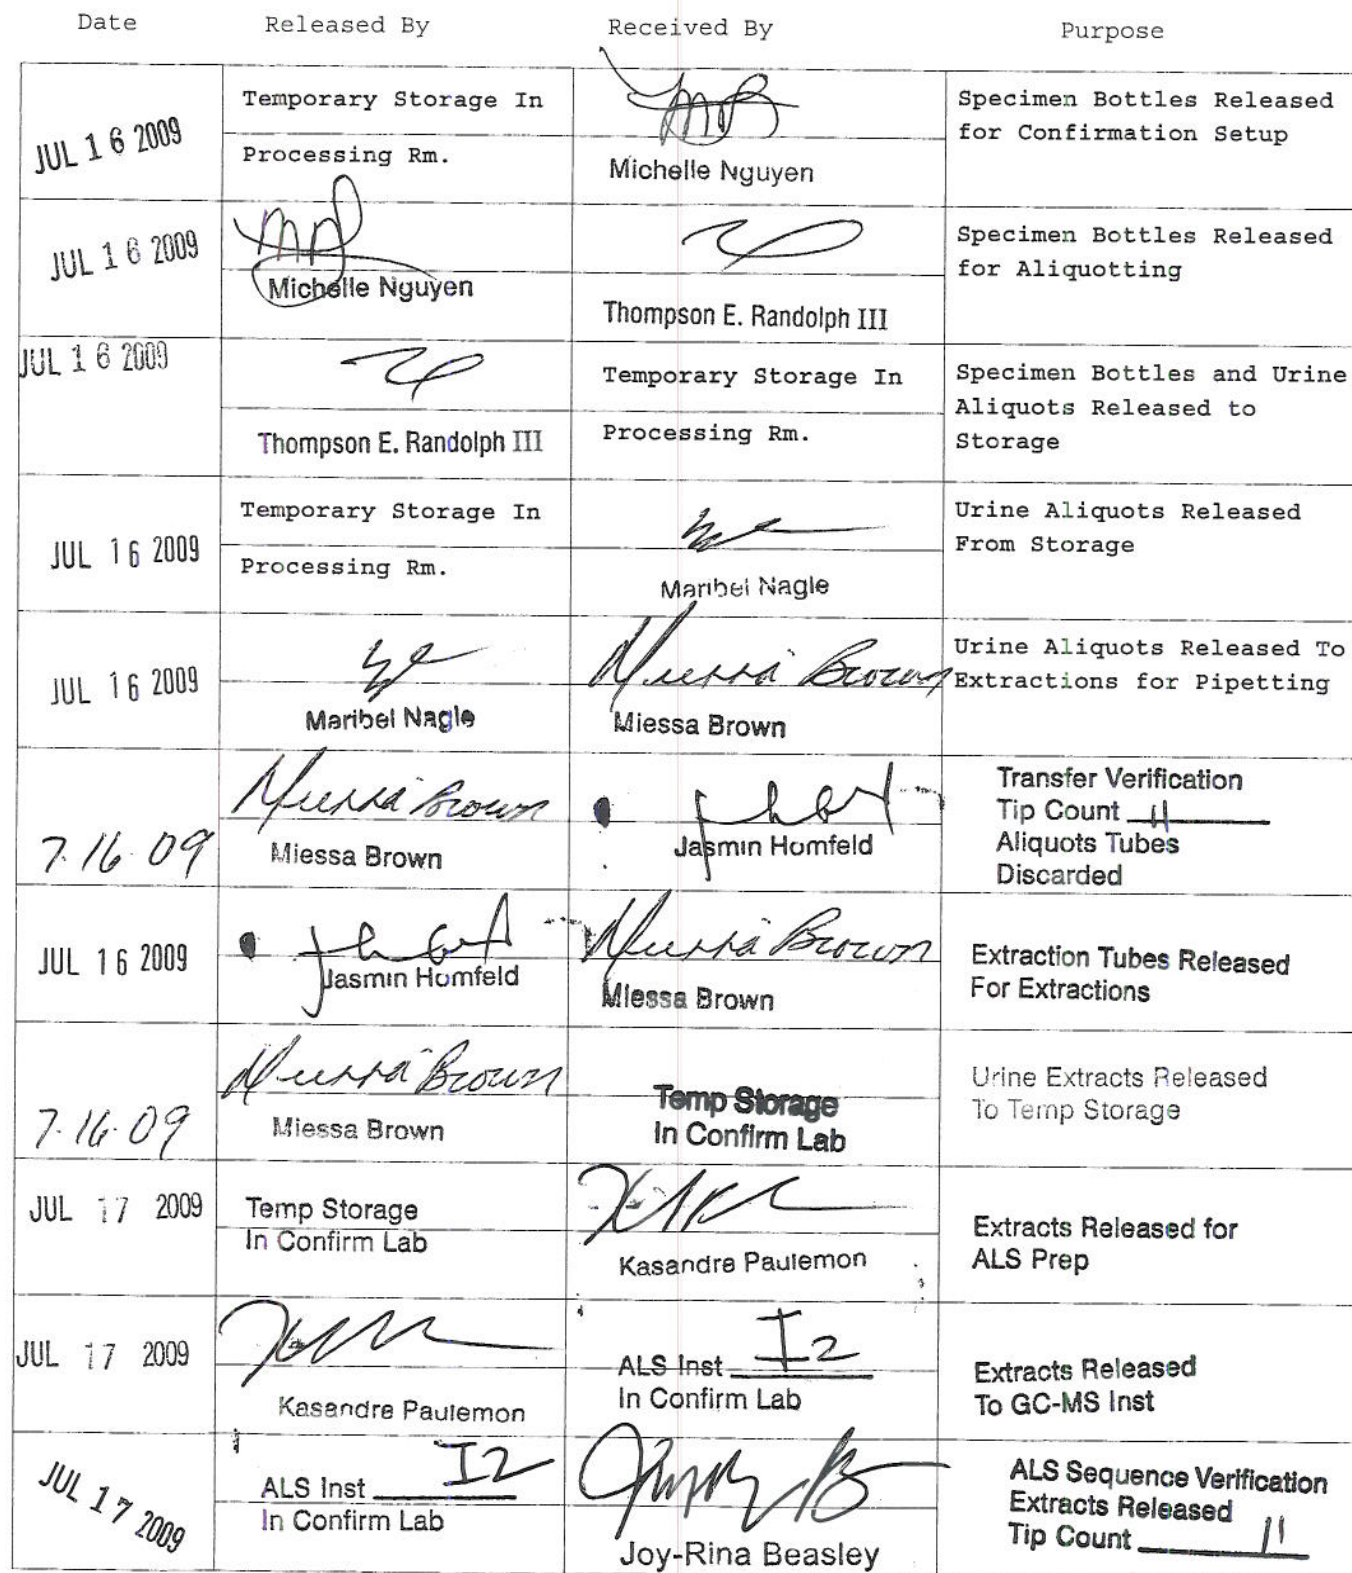 Date Released By Received By Purpose
JUL 16 2009
Temporary Storage In
Processing Rm.
Michelle Nguyen
Specimen Bottles Released
for Confirmation Setup
JUL 16 2009
Michelle Nguyen
Thompson E. Randolph III
Specimen Bottles Released
for Aliquotting
JUL 16 2009
Thompson E. Randolph III
Temporary Storage In
Processing Rm.
Specimen Bottles and Urine
Aliquots Released to
Storage
JUL 16 2009
Temporary Storage In
Processing Rm.
Maribel Nagle
Urine Aliquots Released
From Storage
JUL 16 2009
Maribel Nagle
Miessa Brown
Miessa Brown
Urine Aliquots Released To
Extractions for Pipetting
7.16.09
Miessa Brown
Miessa Brown
Jasmin Homfeld
Transfer Verification
Tip Count 11
Aliquots Tubes
Discarded
JUL 16 2009
Jasmin Homfeld
Miessa Brown
Miessa Brown
Extraction Tubes Released
For Extractions
7.16.09
Miessa Brown
Miessa Brown
Temp Storage
In Confirm Lab
Urine Extracts Released
To Temp Storage
JUL 17 2009
Temp Storage
In Confirm Lab
Kasandra Paulemon
Extracts Released for
ALS Prep
JUL 17 2009
Kasandra Paulemon
ALS Inst I2
In Confirm Lab
Extracts Released
To GC-MS Inst
JUL 17 2009
ALS Inst I2
In Confirm Lab
Joy-Rina Beasley
ALS Sequence Verification
Extracts Released
Tip Count 11